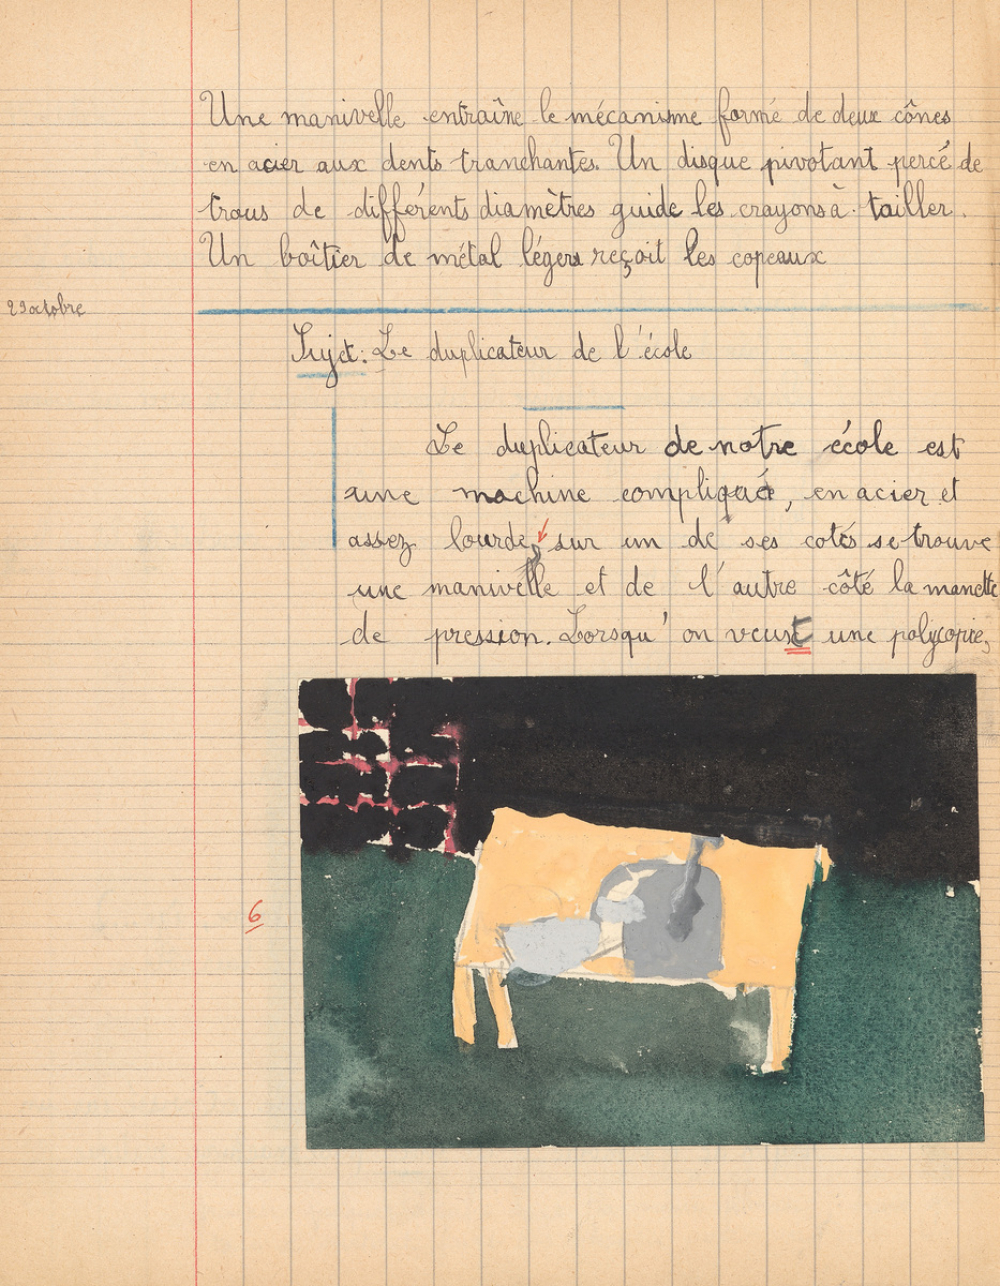 Une manivelle entraîne le mécanisme formé de deux cônes
en acier aux dents tranchantes. Un disque pivotant percé de
trous de différents diamètres guide les crayons à tailler.
Un boîtier de métal léger reçoit les copeaux
29 octobre
Sujet: Le duplicateur de l'école
Le duplicateur de notre école est
une machine compliqué, en acier et
assez lourde, sur un de ses cotés se trouve
une manivelle et de l'autre côté la manette
de pression. Lorsqu'on veut une polycopie,
6